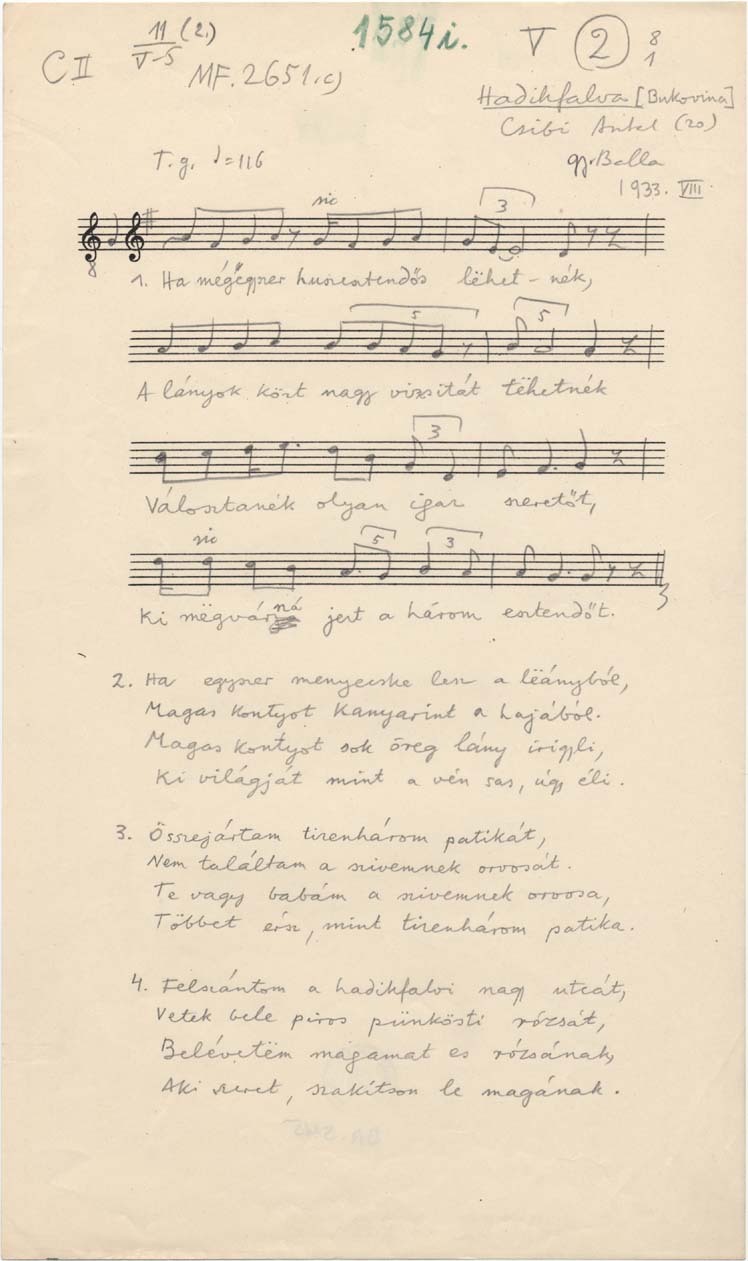 C II
11 (2.)
V-5
MF. 2651. c)
1584i.
V 2 8
1
Hadikfalva [Bukovina]
Csibi Antal (20)
gy. Balla
1933. VIII.
T. g. ♩=116
sic
3
8
1. Ha mégëgyszer huszestendős lëhet - nék,
5 5
A lányok közt nagy vizsitát tëhetnék
3
Válosztanék olyan igaz szeretőt,
sic
5 3
ná
Ki mëgvár jezt a három esztendőt.
2. Ha egyszer menyecske lesz a lëányból,
Magas kontyot kanyarint a hajából.
Magas kontyot sok öreg lány irigyli,
Ki világját mint a vén sas, úgy éli.
3. Összejártam tizenhárom patikát,
Nem találtam a szivemnek orvosát.
Te vagy babám a szivemnek orvosa,
Többet érsz, mint tizenhárom patika.
4. Felszántom a hadikfalvi nagy utcát,
Vetek bele piros pünkösti rózsát,
Belévetëm magamat es rózsának,
Aki szeret, szakítson le magának.